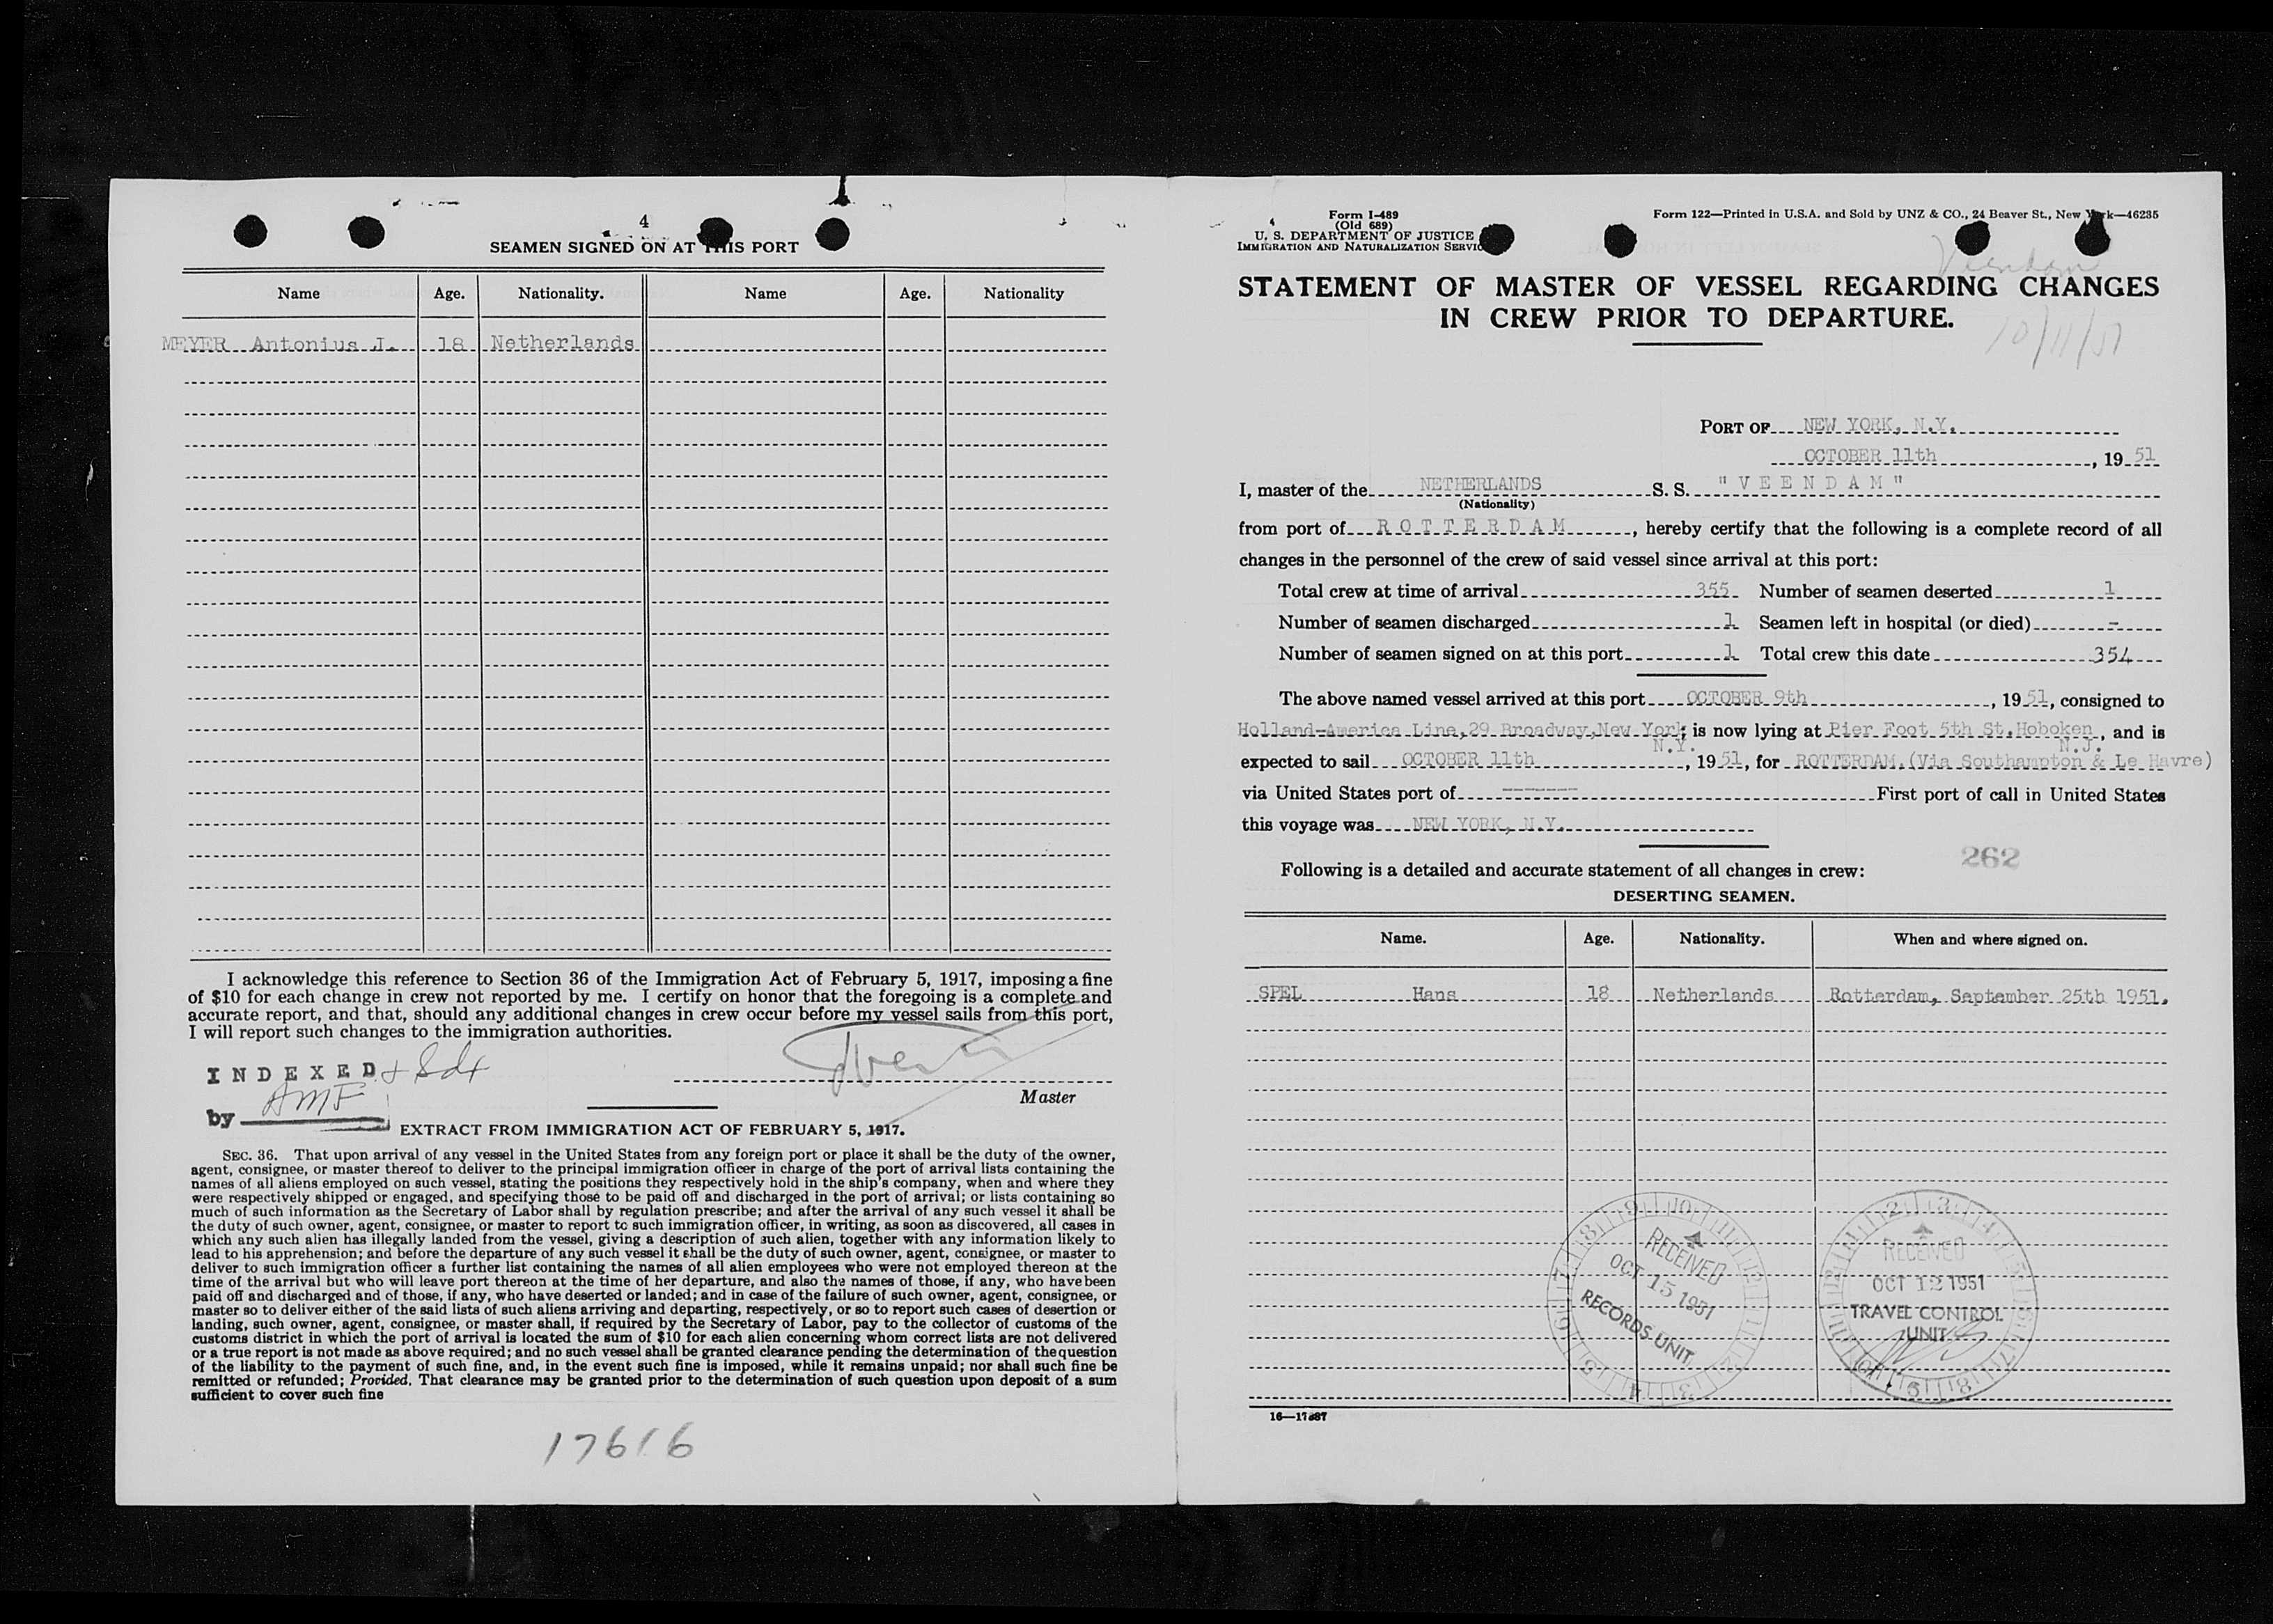 4
SEAMEN SIGNED ON AT THIS PORT
Name Age. Nationality. Name Age. Nationality
MEYER Antonius J. 18 Netherlands
I acknowledge this reference to Section 36 of the Immigration Act of February 5, 1917, imposing a fine
of $10 for each change in crew not reported by me. I certify on honor that the foregoing is a complete and
accurate report, and that, should any additional changes in crew occur before my vessel sails from this port,
I will report such changes to the immigration authorities.
INDEXED
by AMF
Master
EXTRACT FROM IMMIGRATION ACT OF FEBRUARY 5, 1917.
SEC. 36. That upon arrival of any vessel in the United States from any foreign port or place it shall be the duty of the owner,
agent, consignee, or master thereof to deliver to the principal immigration officer in charge of the port of arrival lists containing the
names of all aliens employed on such vessel, stating the positions they respectively hold in the ship's company, when and where they
were respectively shipped or engaged, and specifying those to be paid off and discharged in the port of arrival; or lists containing so
much of such information as the Secretary of Labor shall by regulation prescribe; and after the arrival of any such vessel it shall be
the duty of such owner, agent, consignee, or master to report to such immigration officer, in writing, as soon as discovered, all cases in
which any such alien has illegally landed from the vessel, giving a description of such alien, together with any information likely to
lead to his apprehension; and before the departure of any such vessel it shall be the duty of such owner, agent, consignee, or master to
deliver to such immigration officer a further list containing the names of all alien employees who were not employed thereon at the
time of the arrival but who will leave port thereon at the time of her departure, and also the names of those, if any, who have been
paid off and discharged and of those, if any, who have deserted or landed; and in case of the failure of such owner, agent, consignee, or
master so to deliver either of the said lists of such aliens arriving and departing, respectively, or so to report such cases of desertion or
landing, such owner, agent, consignee, or master shall, if required by the Secretary of Labor, pay to the collector of customs of the
customs district in which the port of arrival is located the sum of $10 for each alien concerning whom correct lists are not delivered
or a true report is not made as above required; and no such vessel shall be granted clearance pending the determination of the question
of the liability to the payment of such fine, and, in the event such fine is imposed, while it remains unpaid; nor shall such fine be
remitted or refunded; Provided, That clearance may be granted prior to the determination of such question upon deposit of a sum
sufficient to cover such fine
17616
Form I-489
(Old 689)
U. S. DEPARTMENT OF JUSTICE
IMMIGRATION AND NATURALIZATION SERVIC
Form 122—Printed in U.S.A. and Sold by UNZ & CO., 24 Beaver St., New York—46235
Veendam
STATEMENT OF MASTER OF VESSEL REGARDING CHANGES
IN CREW PRIOR TO DEPARTURE.
10/11/51
PORT OF NEW YORK, N.Y.
OCTOBER 11th, 19 51
I, master of the NETHERLANDS S. S. "VEENDAM"
(Nationality)
from port of ROTTERDAM, hereby certify that the following is a complete record of all
changes in the personnel of the crew of said vessel since arrival at this port:
Total crew at time of arrival 355 Number of seamen deserted 1
Number of seamen discharged 1 Seamen left in hospital (or died) -
Number of seamen signed on at this port 1 Total crew this date 354
The above named vessel arrived at this port OCTOBER 9th, 19 51, consigned to
Holland-America Line, 29 Broadway, New York; is now lying at Pier Foot 5th St. Hoboken, and is
N.Y. N.J.
expected to sail OCTOBER 11th, 19 51, for ROTTERDAM. (Via Southampton & Le Havre)
via United States port of ------- First port of call in United States
this voyage was NEW YORK, N.Y.
262
Following is a detailed and accurate statement of all changes in crew:
DESERTING SEAMEN.
Name. Age. Nationality. When and where signed on.
SPEL Hans 18 Netherlands Rotterdam, September 25th 1951.
RECEIVED
OCT 15 1951
RECORDS UNIT
RECEIVED
OCT 12 1951
TRAVEL CONTROL
UNIT
16—17887